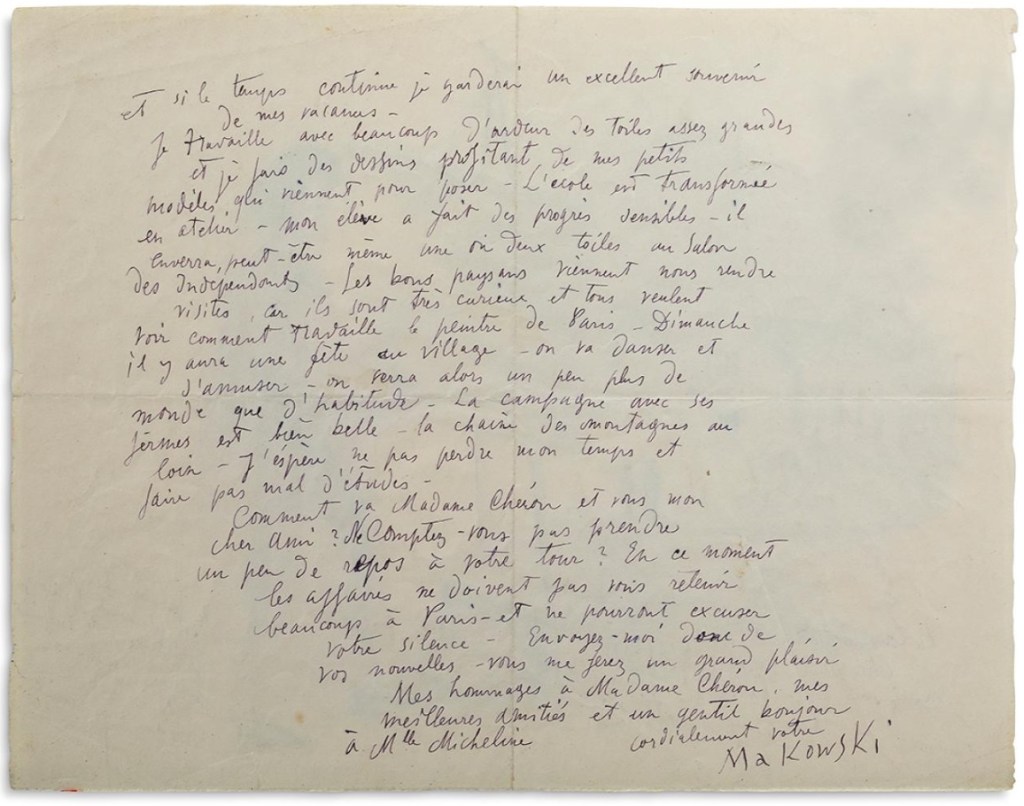 et si le temps continue je garderai un excellent souvenir
de mes vacances -
je travaille avec beaucoup d'ardeur des toiles assez grandes
et je fais des dessins profitant de mes petits
modèles qui viennent pour poser - L'école est transformée
en atelier - mon élève a fait des progrès sensibles - il
enverra, peut-être même une où deux toiles au Salon
des Indépendants - Les bons paysans viennent nous rendre
visites, car ils sont très curieux et tous veulent
voir comment travaille le peintre de Paris - Dimanche
il y aura une fête au village - on va danser et
s'amuser - on verra alors un peu plus de
monde que d'habitude - La campagne avec ses
fermes est bien belle - la chaine des montagnes au
loin - J'éspère ne pas perdre mon temps et
faire pas mal d'études -
Comment va Madame Chéron et vous mon
cher Ami ? Ne Comptez-vous pas prendre
un peu de repos à votre tour ? En ce moment
les affaires ne doivent pas vous retenir
beaucoup à Paris - et ne pourront excuser
votre silence - Envoyez-moi donc de
vos nouvelles - vous me ferez un grand plaisir
Mes hommages à Madame Chéron, mes
meilleures amitiés et un gentil bonjour
à Mlle Micheline cordialement votre
Makowski